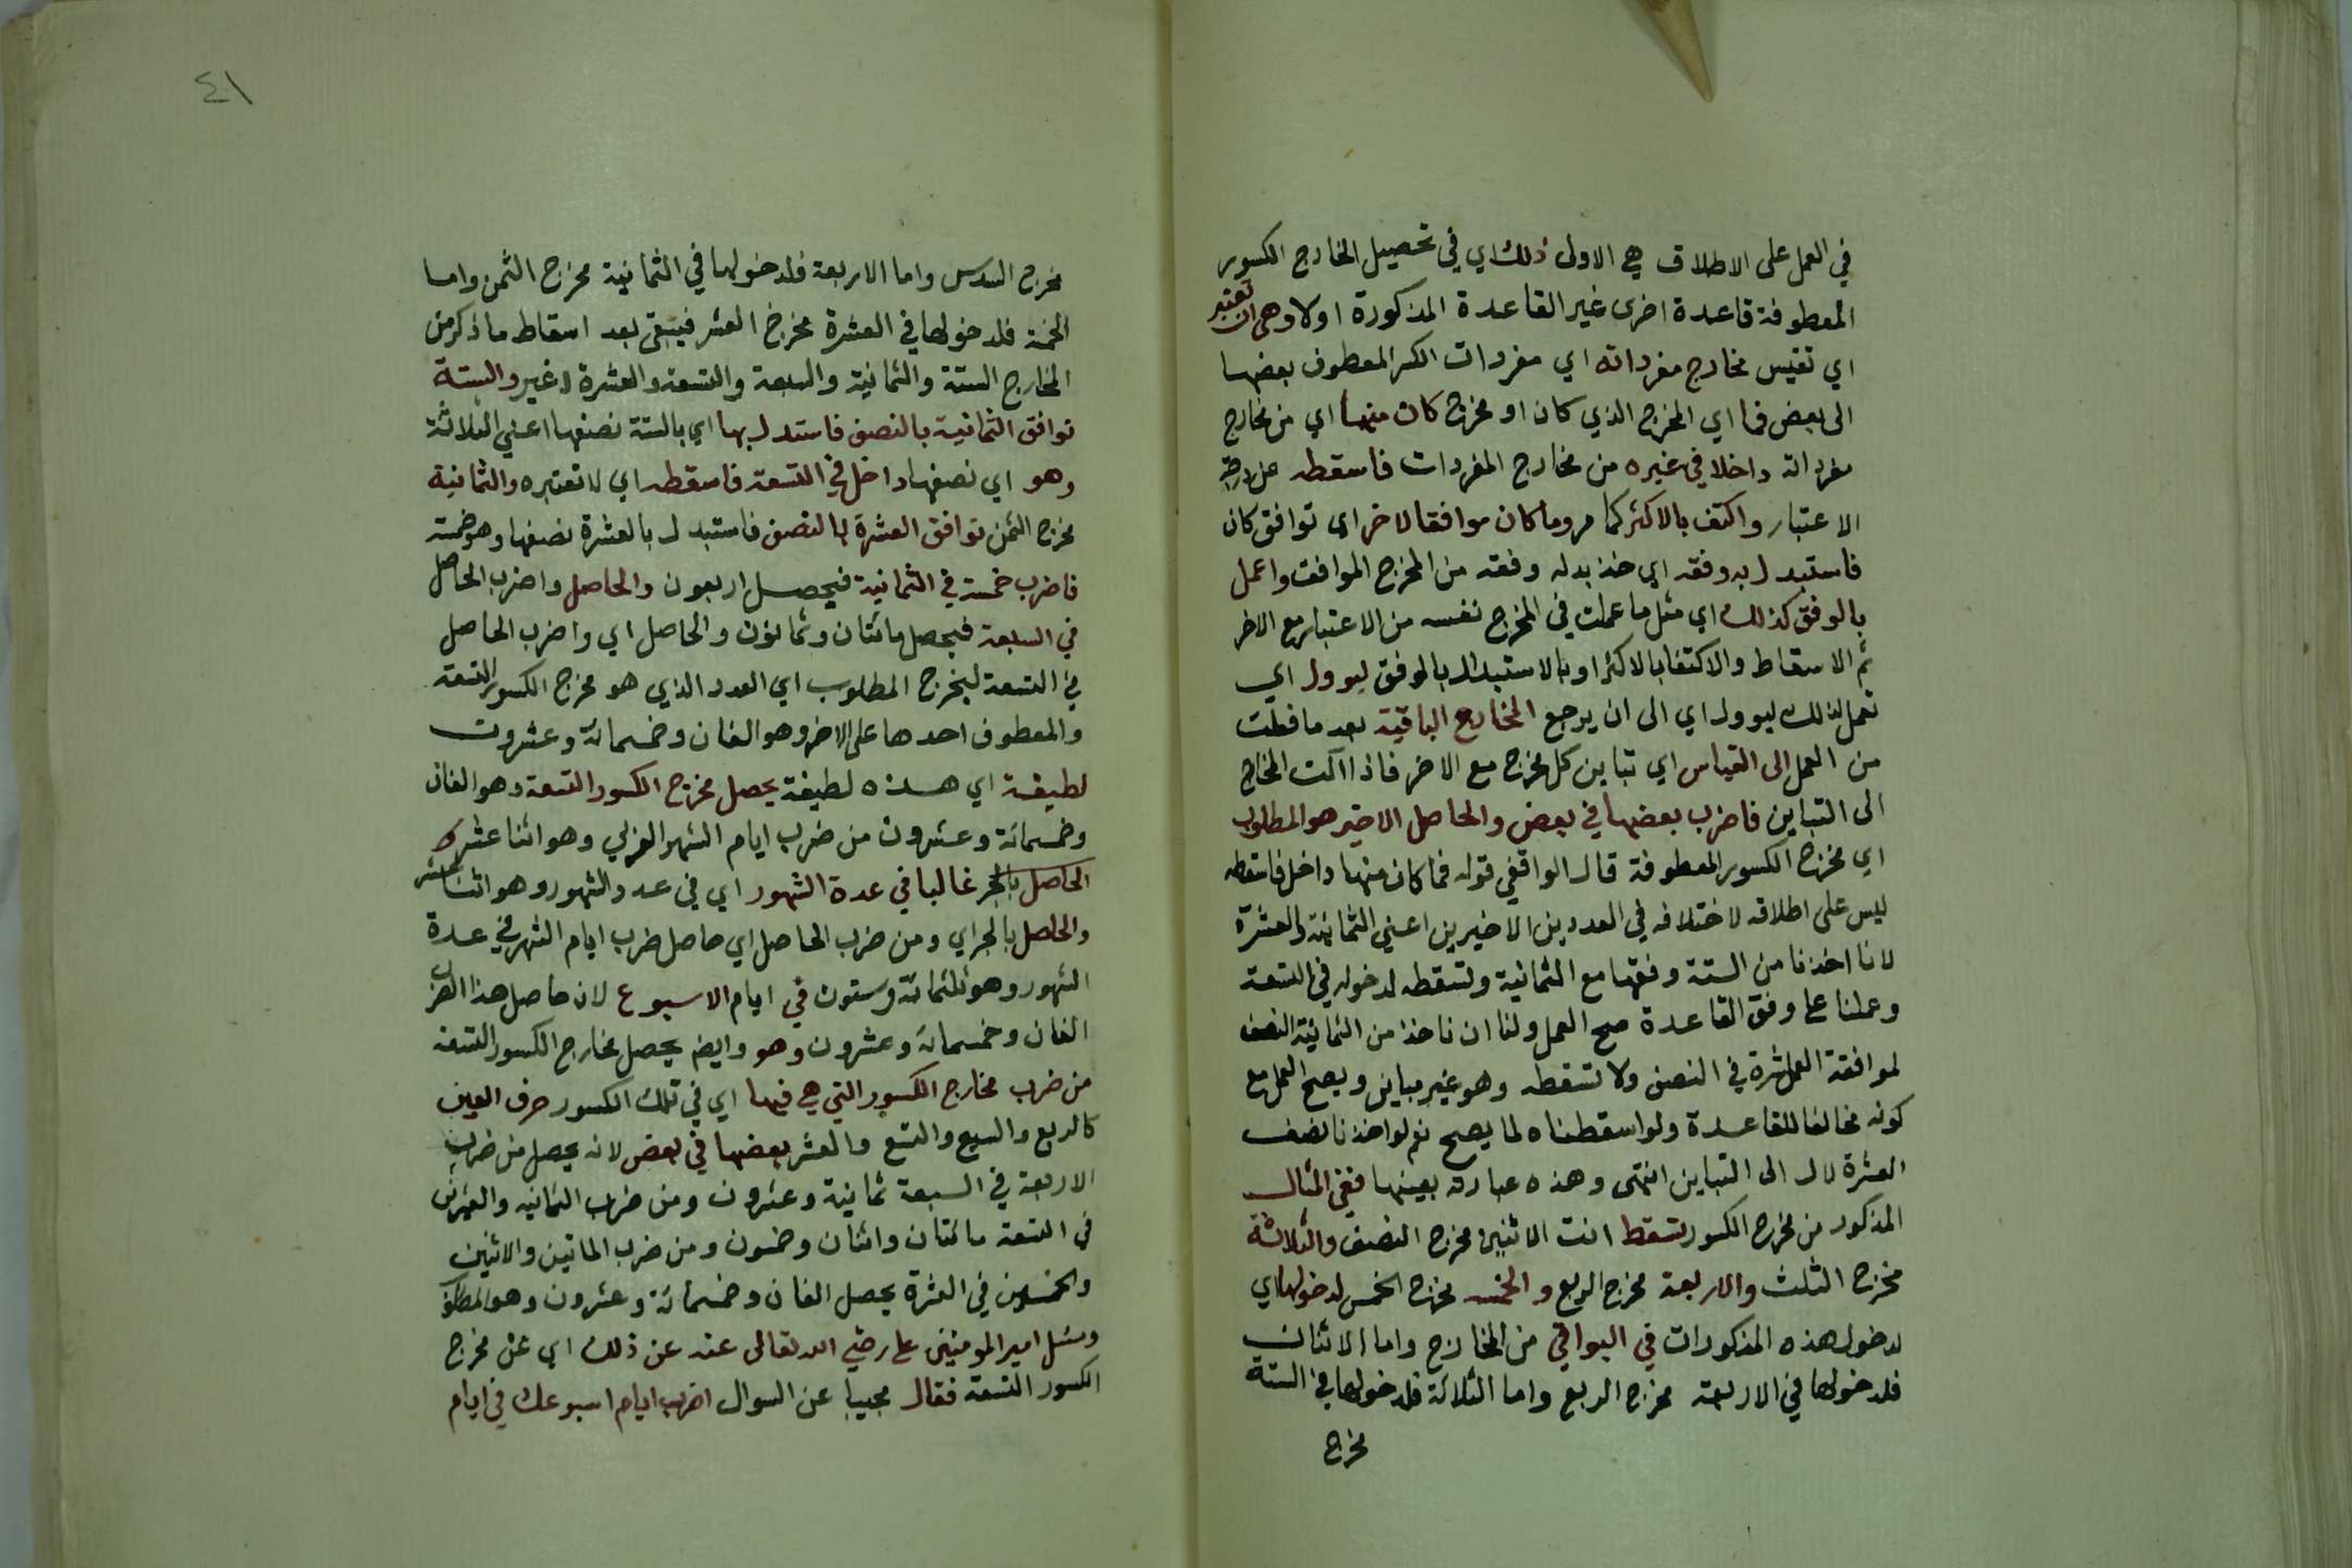 في العمل على الاطلاق هي الاولى ذلك اي في تحصيل المخارج الكسور
المعطوفة قاعدة اخرى غير القاعدة المذكورة اولا وهى ان تعتبر
اي تقيس مخارج مفرداته اي مفردات الكسر المعطوف بعضها
الى بعض فما اي المخرج الذي كان او مخرج كان منها اي من مخارج
مفرداته داخلا في غيره من مخارج المفردات فاسقطه عن درجة
الاعتبار واكتف بالاكثر كما مر وما كان موافقا لاخر اي توافق كان
فاستبدل به وفقه اي خذ بدله وفقه من المخرج الموافق واعمل
بالوفق كذلك اي مثل ما عملت في المخرج نفسه من الاعتبار مع الاخر
ثم الاسقاط والاكتفا بالاكثر او بالاستبدال بالوفق ليوول اي
تعمل لذلك ليوول اي الى ان يرجع المخارج الباقية بعد ما فعلت
من العمل الى القياس اي تباين كل مخرج مع الاخر فاذا آلت المخارج
الى التباين فاضرب بعضها في بعض والحاصل الاخير هو المطلوب
اي مخرج الكسور المعطوفة قال الواقفي قوله فما كان منها داخل فاسقطه
ليس على اطلاقه لاختلافه في العددين الاخيرين اعني الثمانية والعشرة
لانا اخذنا من الستة وفقها مع الثمانية ونسقطه لدخوله في التسعة
وعملنا على وفق القاعدة صح العمل ولنا ان ناخذ من الثمانية النصف
لموافقة العشرة في النصف ولا تسقطه وهو غير مباين ويصح العمل مع
كونه مخالفا للقاعدة ولو اسقطناه لما يصح نعم لو اخذنا نصف
العشرة لال الى التباين انتهى وهذه عبارته بعينها ففي المثال
المذكور من مخرج الكسور تسقط انت الاثنين مخرج النصف والثلاثة
مخرج الثلث والاربعة مخرج الربع والخمسه مخرج الخمس لدخولها اي
لدخول هذه المذكورات في البواقي من المخارج واما الاثنان
فلدخولها في الاربعة مخرج الربع واما الثلاثة فلدخولها في الستة
مخرج
٤١
مخرج السدس واما الاربعة فلدخولها في الثمانية مخرج الثمن واما
الخمسة فلدخولها في العشرة مخرج العشر فيبقى بعد اسقاط ما ذكر من
المخارج الستة والثمانية والسبعة والتسعة والعشرة لا غير والستة
توافق الثمانية بالنصف فاستبدل بها اي بالستة نصفها اعني الثلاثة
وهو اي نصفها داخل في التسعة فاسقطه اي لا تعتبره والثمانية
مخرج الثمن توافق العشرة بالنصف فاستبدل بالعشرة نصفها وهو خمسة
فاضرب خمسة في الثمانية فيحصل اربعون والحاصل واضرب الحاصل
في السبعة فيحصل مائتان وثمانون والحاصل اي واضرب الحاصل
في التسعة ليخرج المطلوب اي العدد الذي هو مخرج الكسور التسعة
والمعطوف احدها على الاخر وهو الفان وخمسمائة وعشرون
لطيفة اي هذه لطيفة يحصل مخرج الكسور التسعة وهو الفان
وخمسمائة وعشرون من ضرب ايام الشهر وهو اثنا عشر و
الحاصل بالجر غالبا في عدة الشهور اي في عدد الشهور وهو اثنا عشر
والحاصل بالجر اي ومن ضرب الحاصل اي حاصل ضرب ايام الشهر في عدة
الشهور وهو ثلثمائة وستون في ايام الاسبوع لان حاصل هذا الضرب
الفان وخمسمائة وعشرون وهو وايضا يحصل مخارج الكسور التسعة
من ضرب مخارج الكسور التي هي فيها اي في تلك الكسور حرف العين
كالربع والسبع والتسع والعشر بعضها في بعض لانه يحصل من ضرب
الاربعة في السبعة ثمانية وعشرون ومن ضرب الثمانيه والعشرين
في التسعة مائتان واثنان وخمسون ومن ضرب المائتين والاثنين
والخمسين في العشرة يحصل الفان وخمسمائة وعشرون وهو المطلوب
وسئل امير المومنين على رضي الله تعالى عنه عن ذلك اي عن مخرج
الكسور التسعة فقال مجيبا عن السوال اضرب ايام اسبوعك في ايام